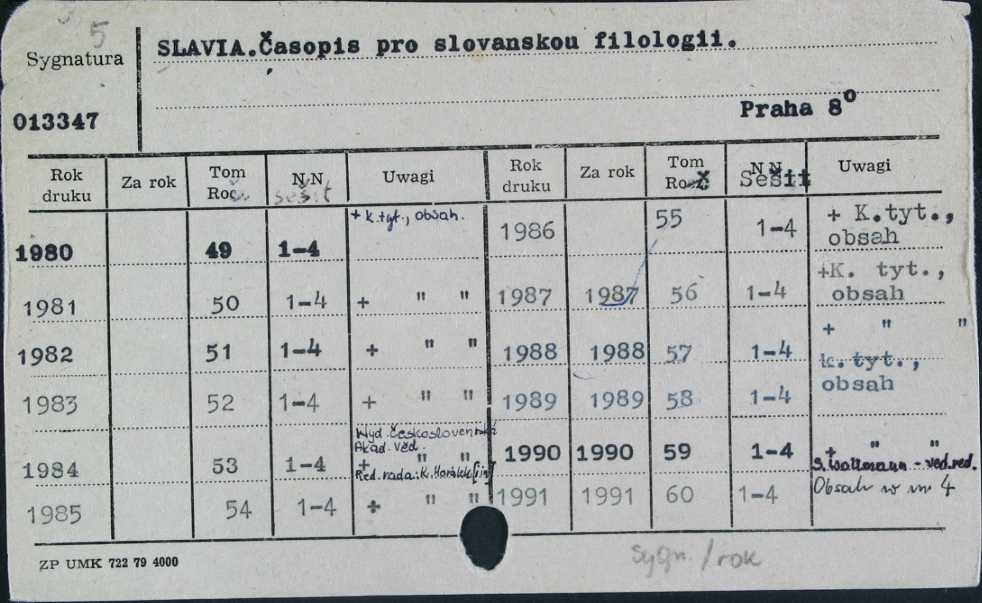 5
Sygnatura
SLAVIA.Časopis pro slovanskou filologii.
013347
Praha 8º
Rok druku Za rok Tom Roč. NN sešit Uwagi Rok druku Za rok Tom Roč NN Sešit Uwagi
1980 49 1-4 + k.tyt., obsah. 1986 55 1-4 + K.tyt., obsah
1981 50 1-4 + " " 1987 1987 56 1-4 +K. tyt., obsah
1982 51 1-4 + " " 1988 1988 57 1-4 + " "
1983 52 1-4 + " " 1989 1989 58 1-4 k. tyt., obsah
Wyd. Československá Akad. věd.
1984 53 1-4 + " " 1990 1990 59 1-4 + " "
Red. rada: K. Horálek [i in] S. Wollmann - ved. red.
1985 54 1-4 + " " 1991 1991 60 1-4 Obsah w nr 4
ZP UMK 722 79 4000
Sygn. / rok